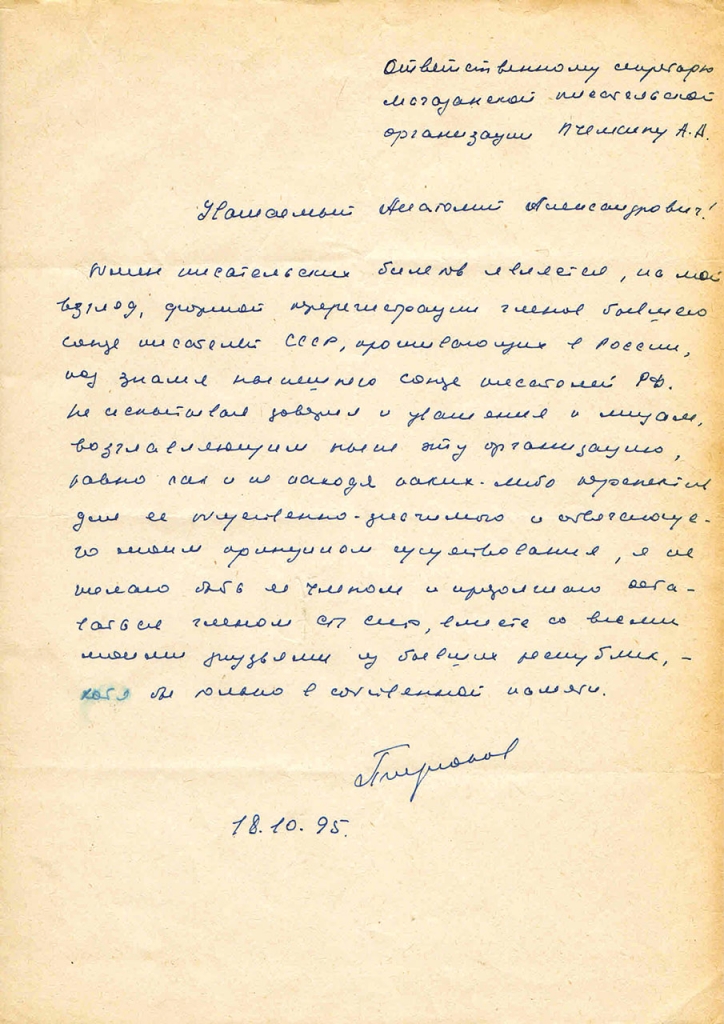 Ответственному секретарю
магаданской писательской
организации Пчелкину А.А.
Уважаемый Анатолий Александрович!
Обмен писательских билетов является, на мой
взгляд, формой перерегистрации членов бывшего
союза писателей СССР, проживающих в России,
под знамя нынешнего союза писателей РФ.
Не испытывая доверия и уважения к лицам,
возглавляющим ныне эту организацию,
равно как и не находя каких-либо перспектив
для ее общественно-значимого и отвечающе-
го моим принципам существования, я не
желаю быть ее членом и продолжаю оста-
ваться членом СП СССР, вместе со всеми
моими друзьями из бывших республик, –
хотя бы только в собственной памяти.
18.10.95.